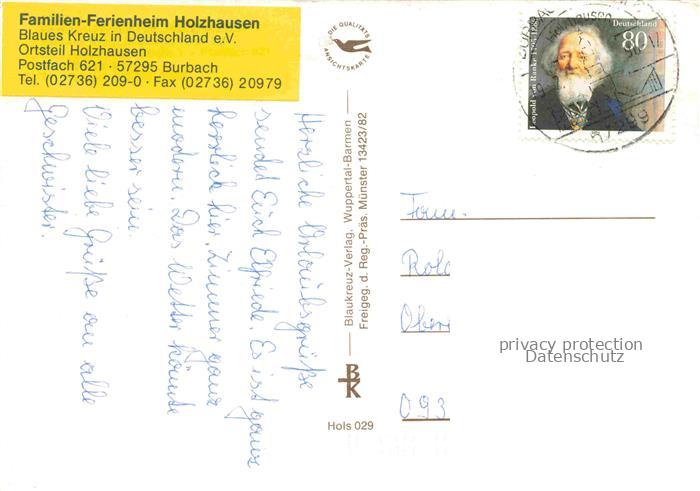 Familien-Ferienheim Holzhausen
Blaues Kreuz in Deutschland e.V.
Ortsteil Holzhausen
Postfach 621 · 57295 Burbach
Tel. (02736) 209-0 · Fax (02736) 20979
Herzliche Urlaubsgrüße
sendet Euch Elfriede. Es ist ganz
herrlich hier, Zimmer ganz
modern. Das Wetter könnte
besser sein.
Viele liebe Grüße an alle
Geschwister.
DIE QUALITÄTS
ANSICHTSKARTE
Blaukreuz-Verlag, Wuppertal-Barmen
Freigeg. d. Reg.-Präs. Münster 13423/82
BK
Hols 029
Deutschland
80
Leopold von Ranke 1795-1886
Fam.
Rol
Ober
093
privacy protection
Datenschutz